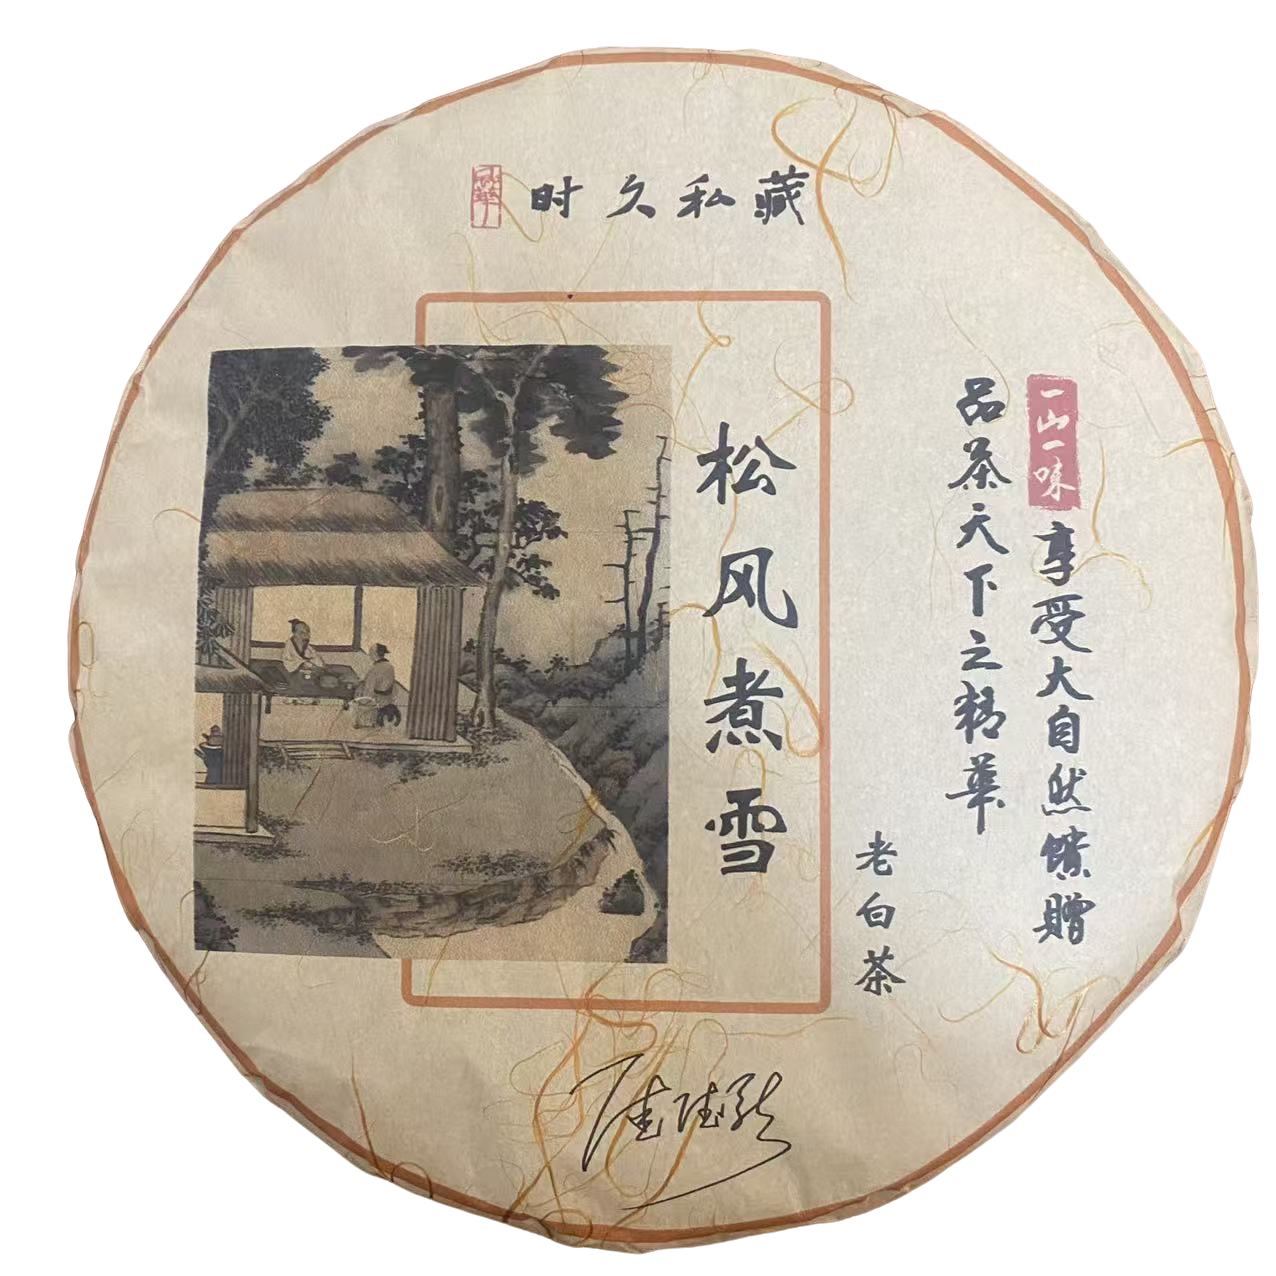 时久私藏
一山一味
享受大自然馈赠
品茶天下之精華
老白茶
松风煮雪